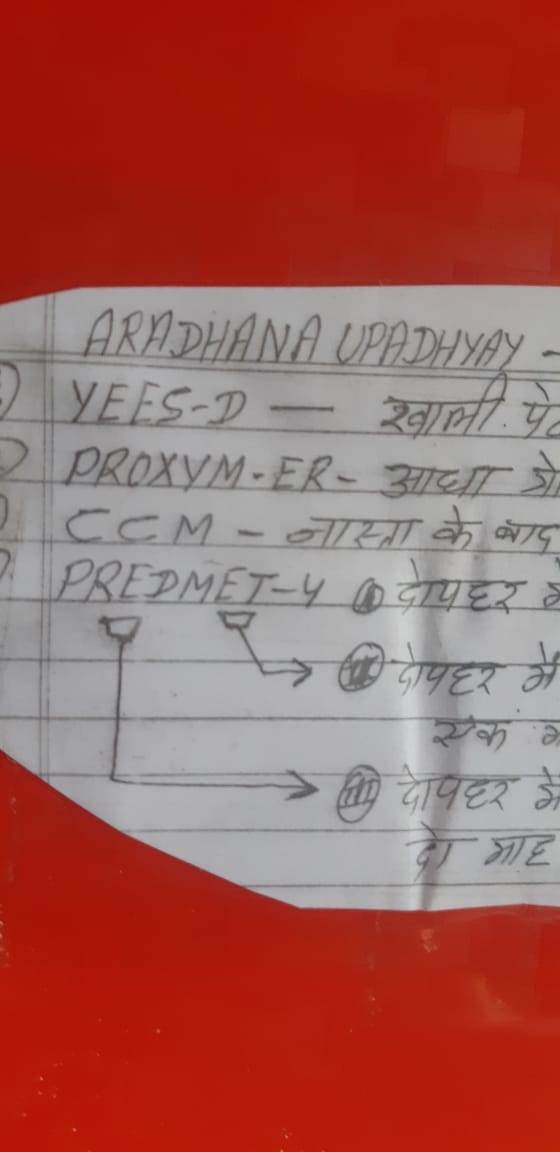 ARADHANA UPADHYAY -
YEES-D — खाली पे
PROXYM-ER- आधा
CCM - नास्ता के बाद
PREDMET-4 (I) दोपहर मे
(II) दोपहर मे
एक
(III) दोपहर मे
दो माह